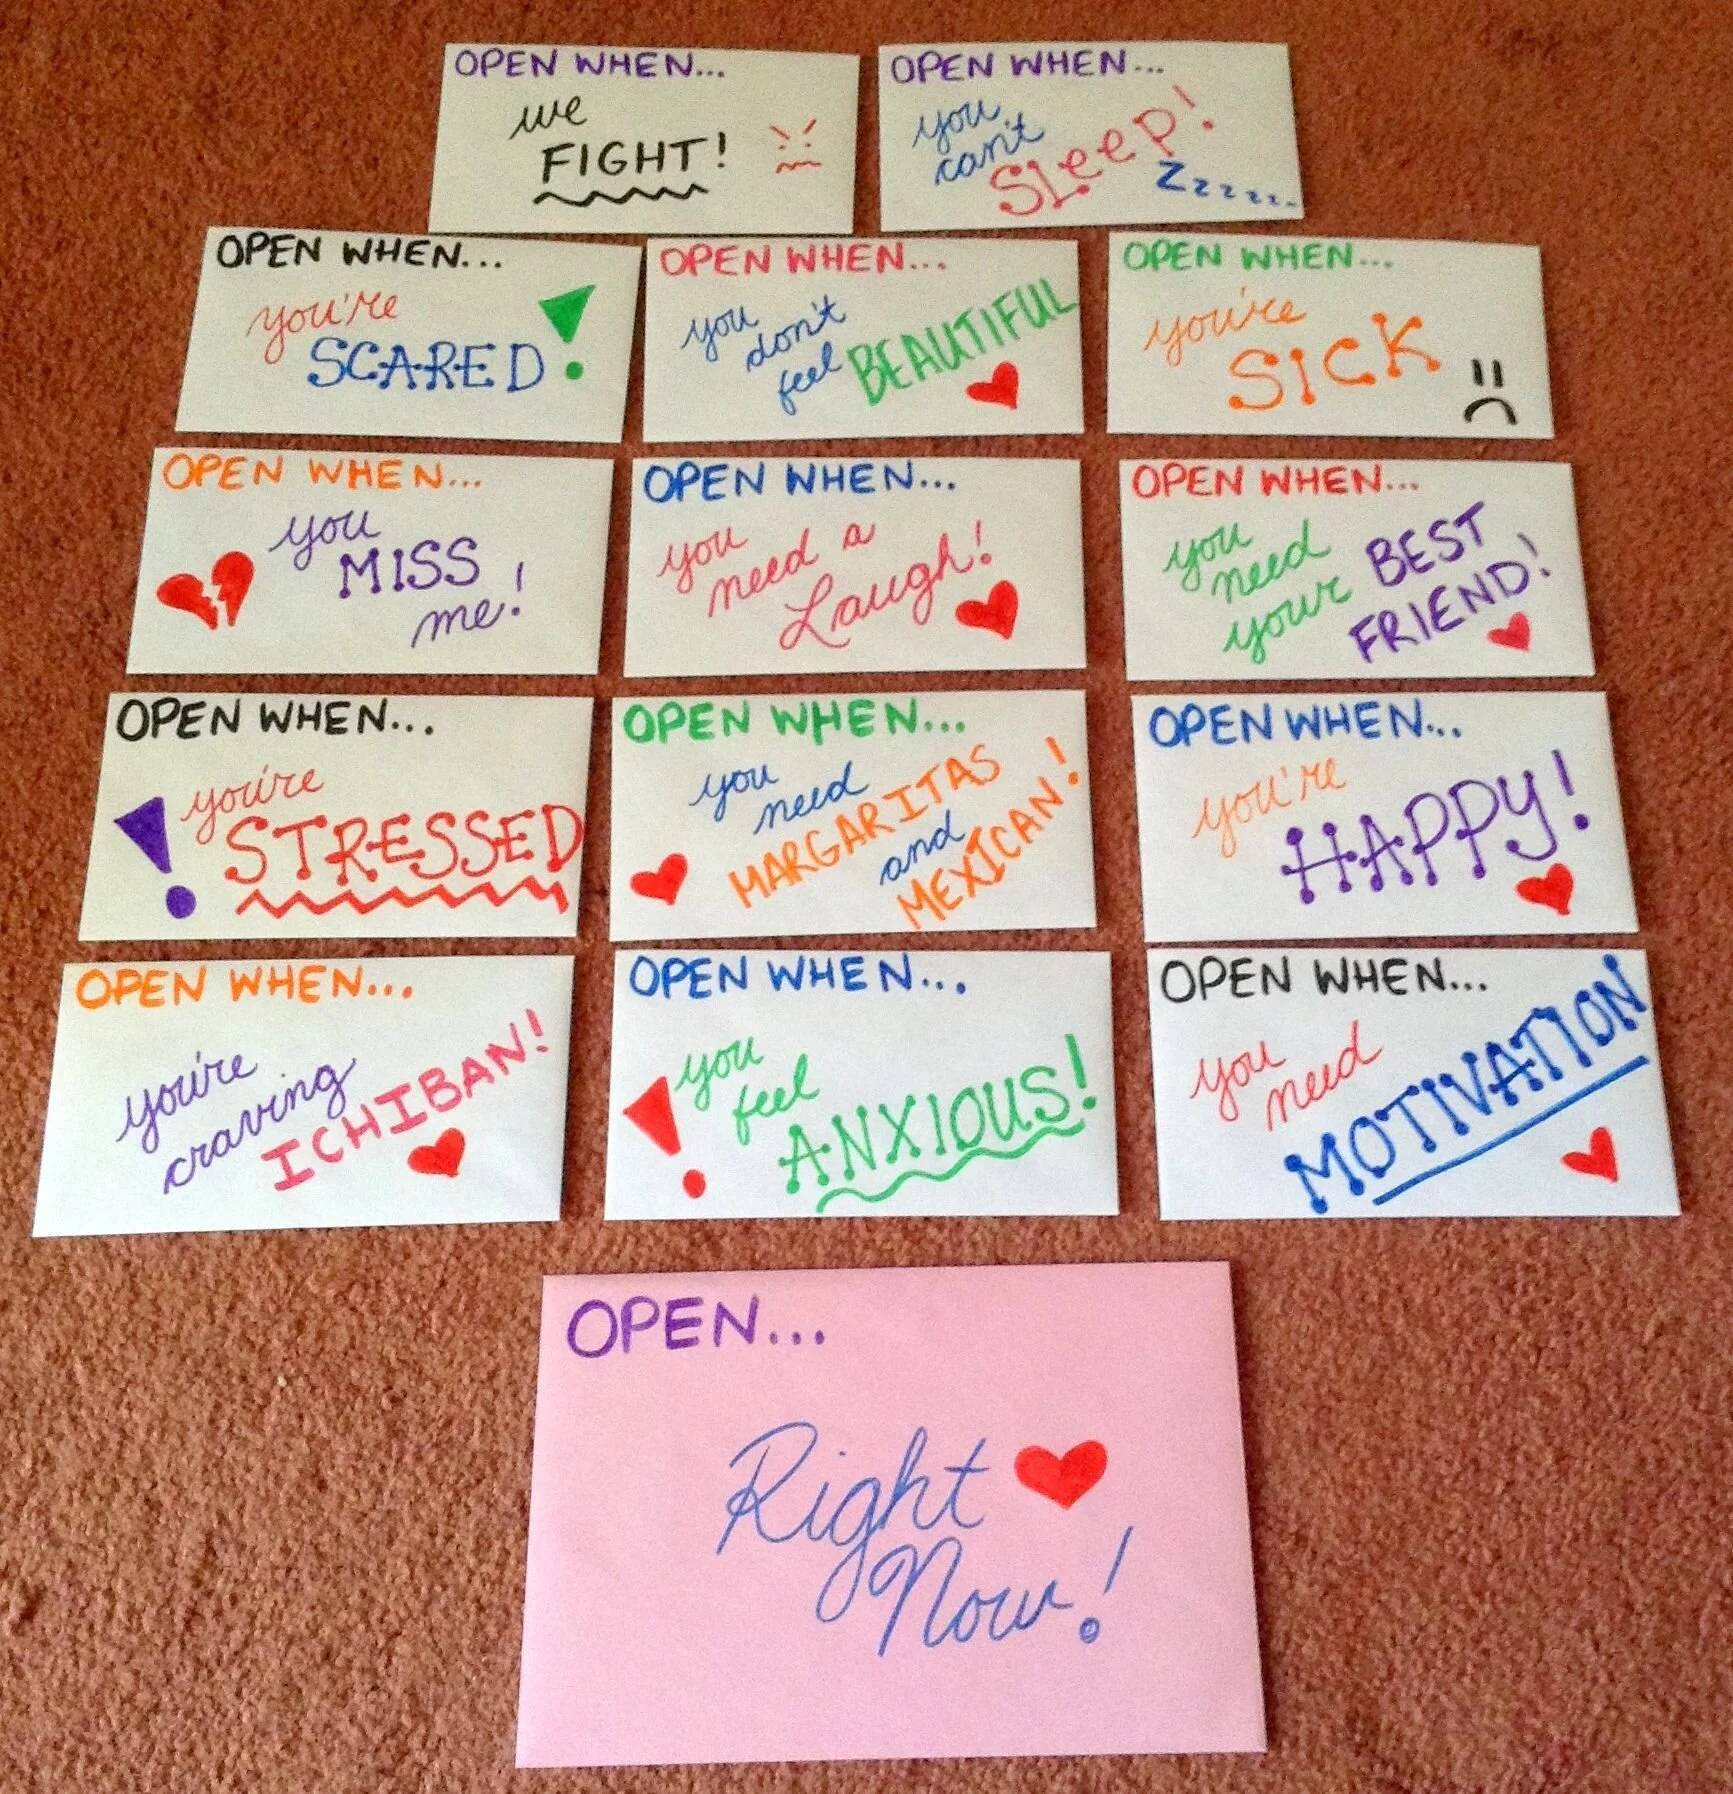 OPEN WHEN...
we
FIGHT!
OPEN WHEN...
you
can't
SLeeP!
Zzzzz..
OPEN WHEN...
you're
SCARED!
OPEN WHEN...
you
don't
feel BEAUTIFUL
OPEN WHEN...
you're
SICK
OPEN WHEN...
you
MISS
me!
OPEN WHEN...
you
need a
Laugh!
OPEN WHEN...
you
need
your BEST
FRIEND!
OPEN WHEN...
you're
STRESSED
OPEN WHEN...
you
need
MARGARITAS
and
MEXICAN!
OPEN WHEN...
you're
HAPPY!
OPEN WHEN...
you're
craving
ICHIBAN!
OPEN WHEN...
you
feel
ANXIOUS!
OPEN WHEN...
you
need
MOTIVATION
OPEN...
Right
Now!